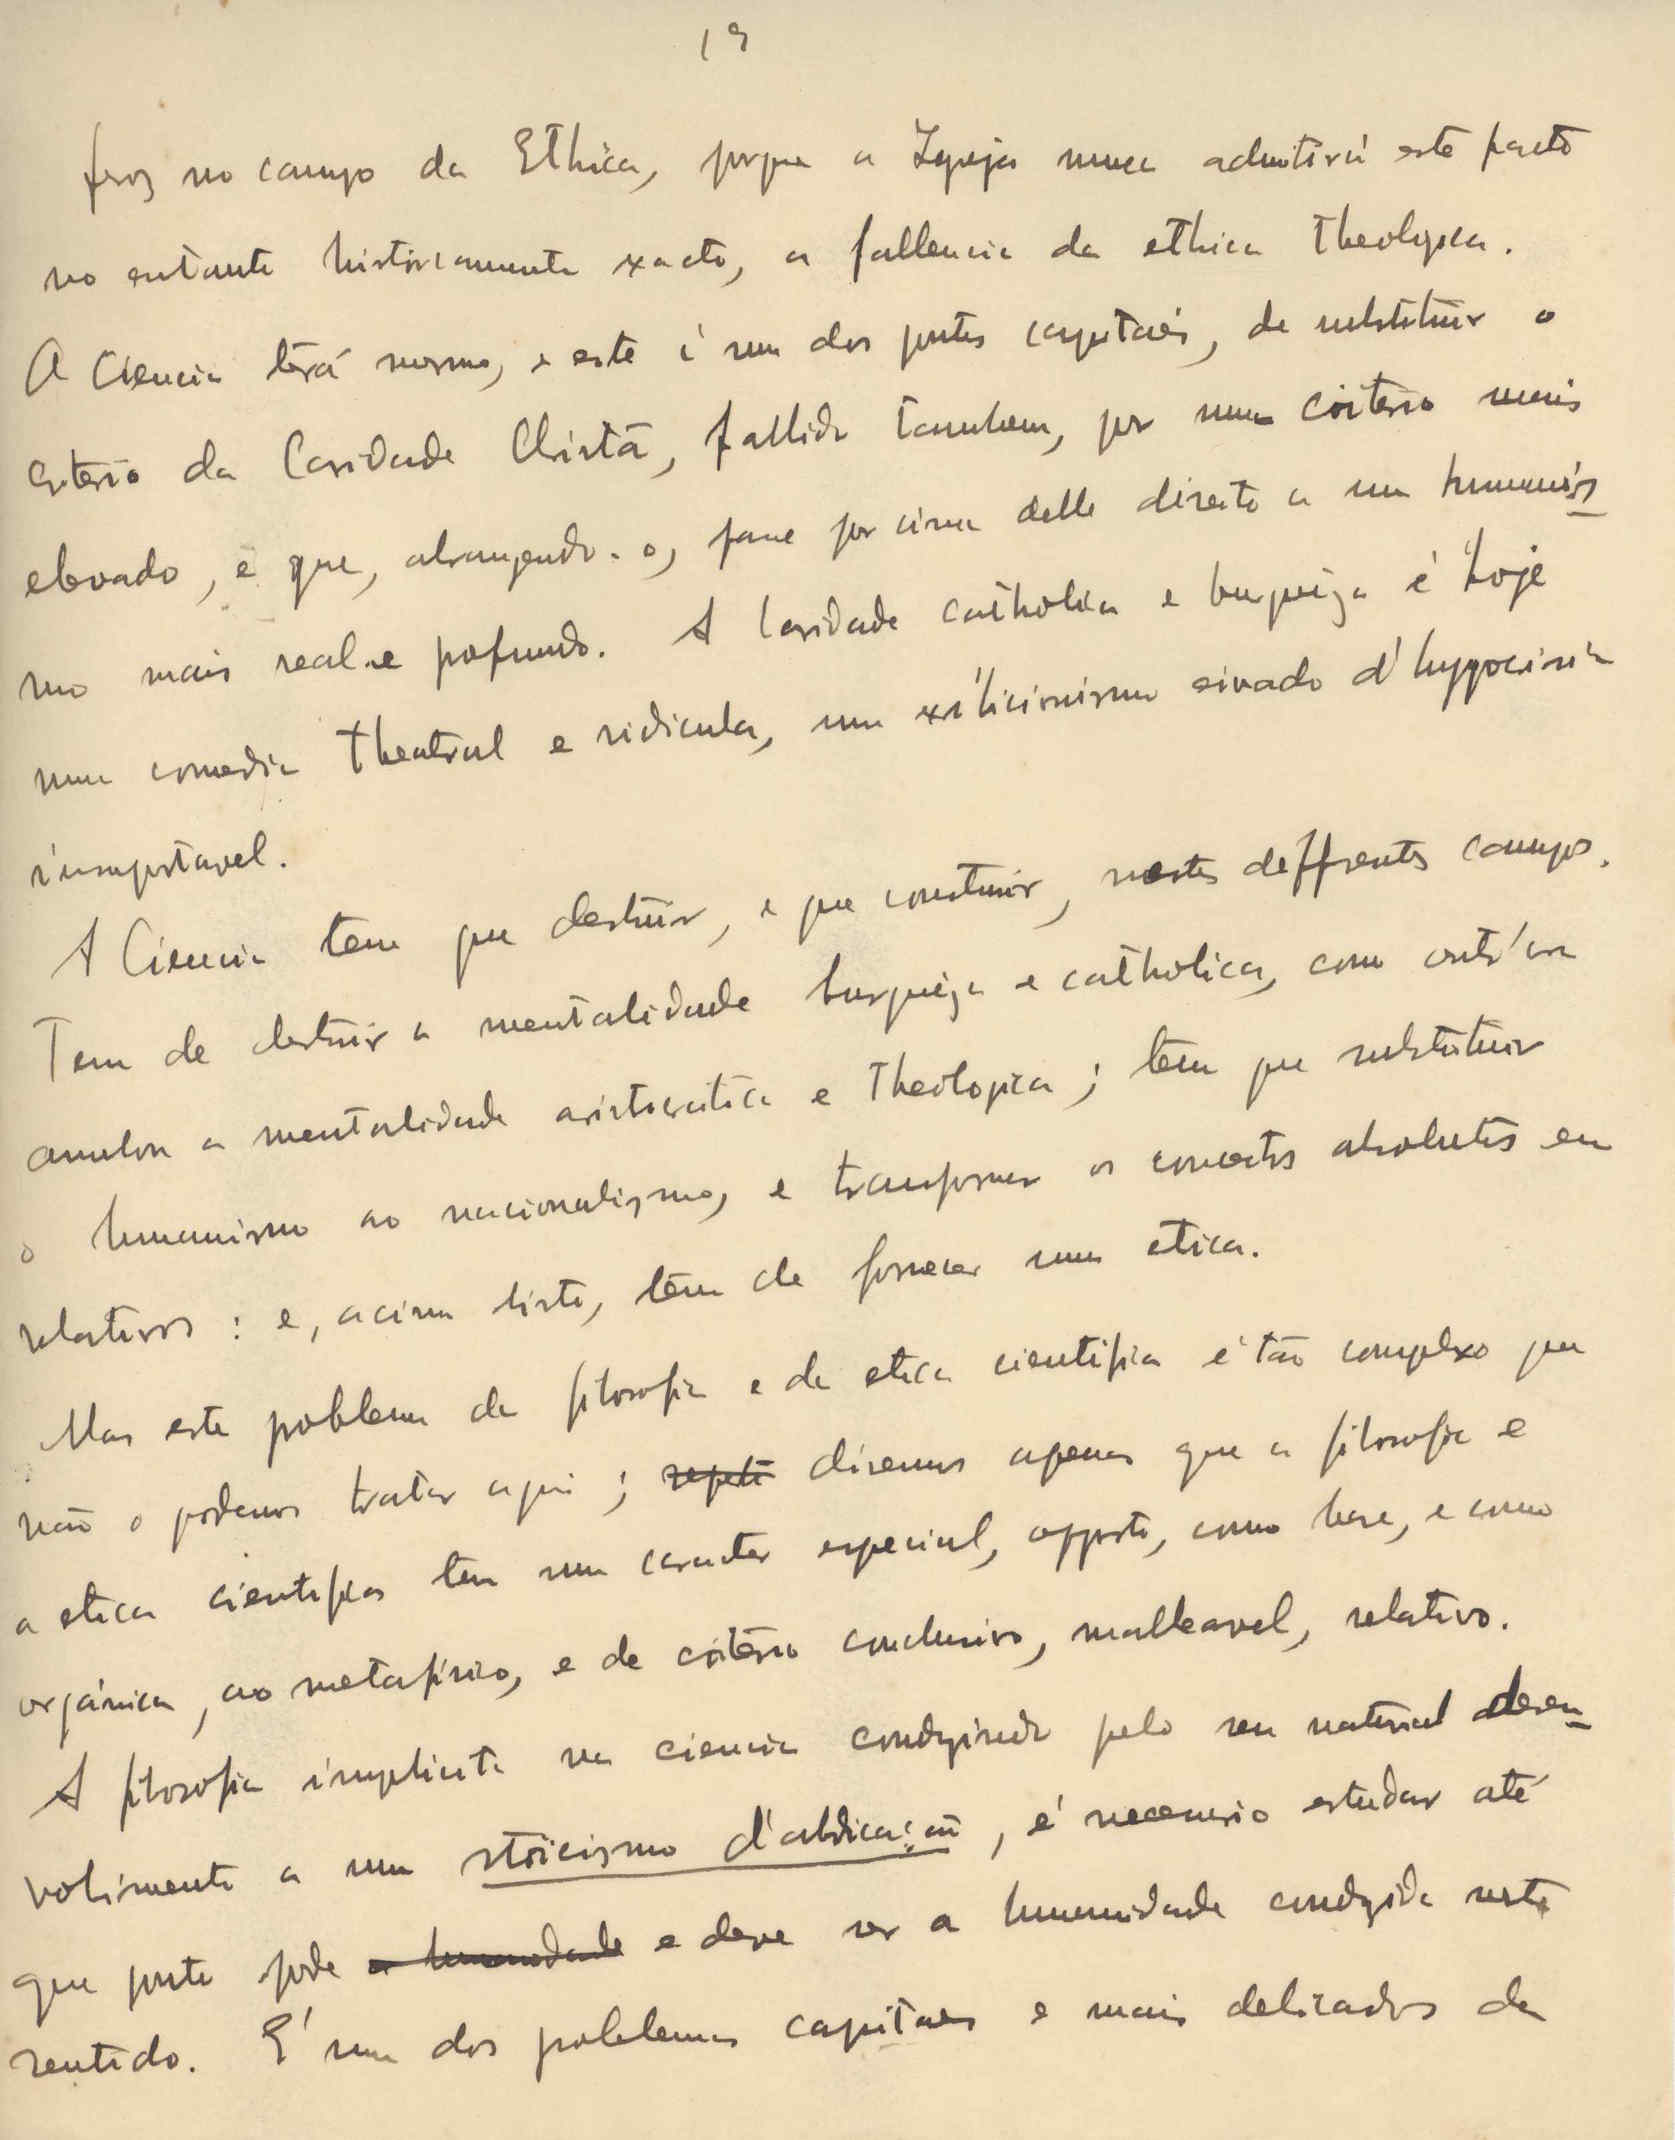 19
feroz no campo da Ethica, porque a Igreja nunca admitirá este facto
no entanto historicamente exacto, a fallencia da ethica theologica.
A Ciencia terá mesmo, e este é um dos pontos capitaes, de substituir o
criterio da Caridade Christã, fallido tambem, por um criterio mais
elevado, e que, abrangendo-o, passe por cima delle direito a um humanis
mo mais real e profundo. A Caridade catholica e burgueza é hoje
uma comedia theatral e ridicula, um exibicionismo eivado d'hypocrisia
insuportavel.
A Ciencia tem que destruir, e que construir, nestes deffrentes campos.
Tem de destruir a mentalidade burgueza e catholica, como outr'ora
anulou a mentalidade aristocratica e theologica; tem que substituir
o humanismo ao nacionalismo, e transformar os conceitos absolutos em
relativos: e, acima disto, tem de fornecer uma etica.
Mas este problema da filosofia e da etica cientifica é tão complexo que
não o podemos tratar aqui; repeti diremos apenas que a filosofia e
a etica cientificas tem um caracter especial, opposto, como base, e como
orgánica, ao metafísico, e de criterio conclusivo, malleavel, relativo.
A filosofia implicita na ciencia conduzindo pelo seu natural desen
volvimento a um stoicismo d'abdicação, é necessario estudar até
que ponto pode a humanidade e deve ser a humanidade conduzida neste
sentido. É um dos problemas capitaes e mais delicados da